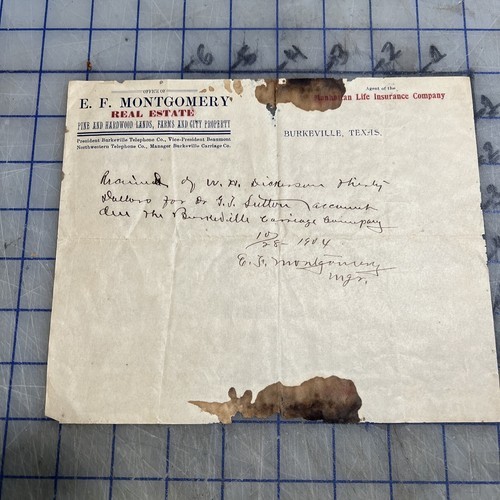 OFFICE OF
E. F. MONTGOMERY
REAL ESTATE
PINE AND HARDWOOD LANDS, FARMS AND CITY PROPERTY
President Burkeville Telephone Co., Vice-President Beaumont
Northwestern Telephone Co., Manager Burkeville Carriage Co.
Agent of the
Manhattan Life Insurance Company
BURKEVILLE, TEXAS.
Received of W. H. Dickerson Thirty
Dollars for Dr G. J. Sutton account
due the Burkeville Carriage Company
10/28 1904
E. F. Montgomery
Mgr.
6 5 4 3 2 1